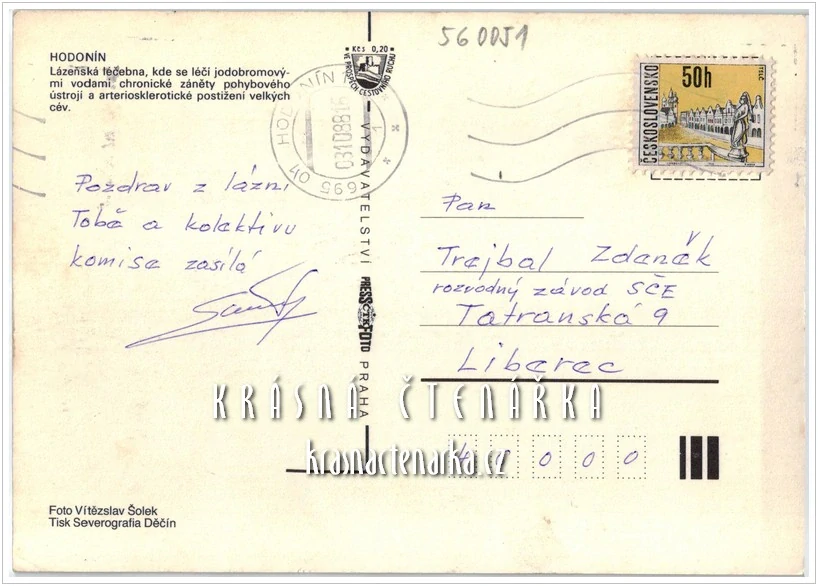 560051
HODONÍN
Lázeňská léčebna, kde se léčí jodobromový-
mi vodami chronické záněty pohybového
ústrojí a arteriosklerotické postižení velkých
cév.
Kčs 0,20
VE PROSPĚCH CESTOVNÍHO RUCHU
695 01 HODONÍN 1
031088
ČESKOSLOVENSKO
50h
TELČ
Pozdrav z lázní
Tobě a kolektivu
komise zasílá
VYDAVATELSTVÍ PRESSFOTO PRAHA
ČTK
Pan
Trejbal Zdeněk
rozvodný závod SČE
Tatranská 9
Liberec
KRÁSNÁ ČTENÁŘKA
krasnactenarka.cz
000
Foto Vítězslav Šolek
Tisk Severografia Děčín